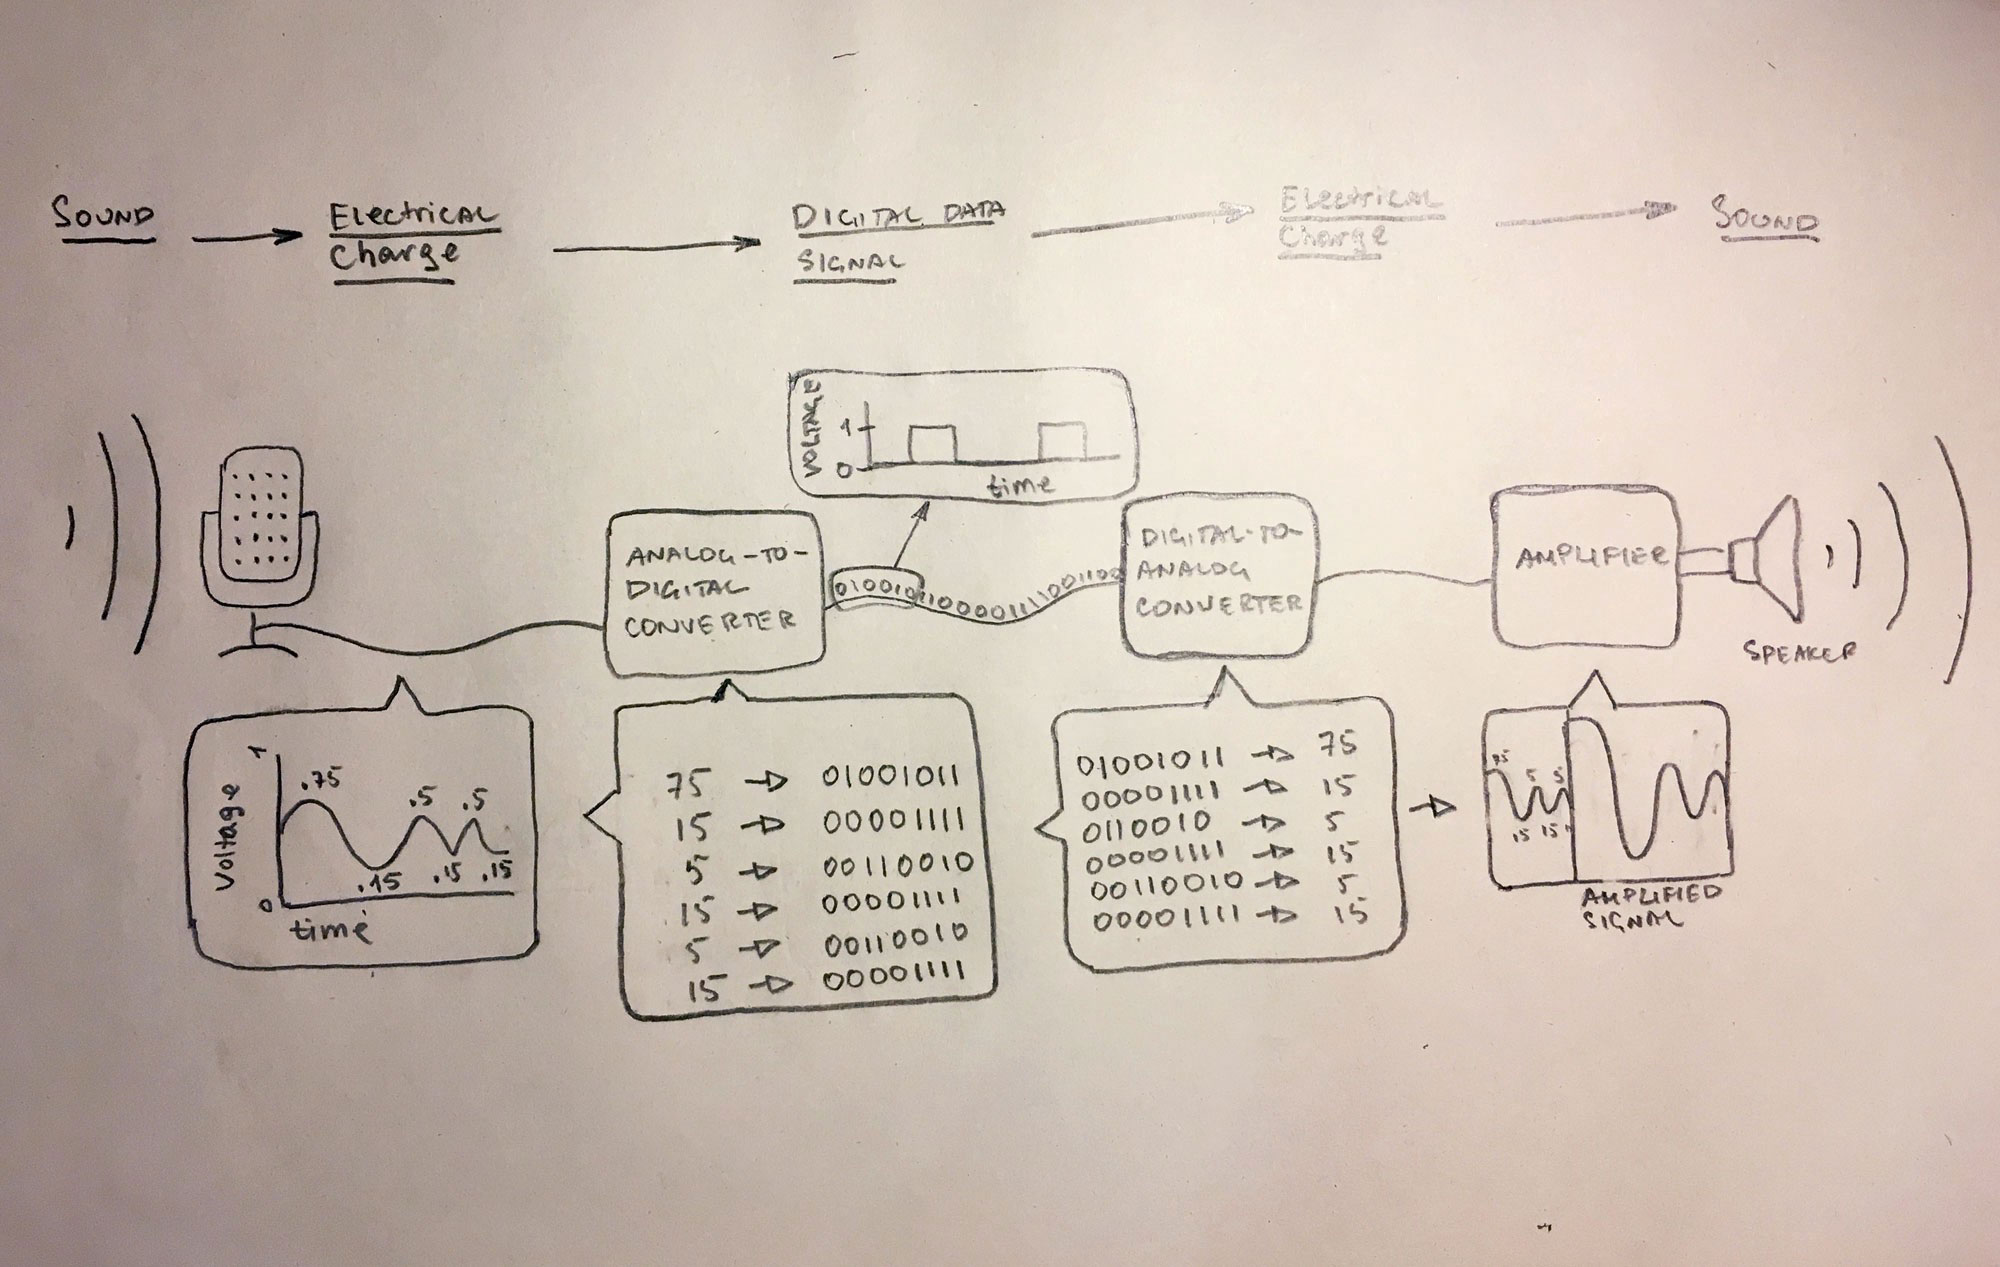 SOUND
Electrical
Charge
DIGITAL DATA
SIGNAL
Electrical
Charge
SOUND
VOLTAGE
1
0
time
ANALOG-TO-
DIGITAL
CONVERTER
010010110000111100001100
DIGITAL-TO-
ANALOG
CONVERTER
AMPLIFIER
SPEAKER
Voltage
1
0
.75
.15
.5
.15
.5
.15
time
75 → 01001011
15 → 00001111
5 → 00110010
15 → 00001111
5 → 00110010
15 → 00001111
01001011 → 75
00001111 → 15
0110010 → 5
00001111 → 15
00110010 → 5
00001111 → 15
→
75
15
5
15
5
AMPLIFIED
SIGNAL